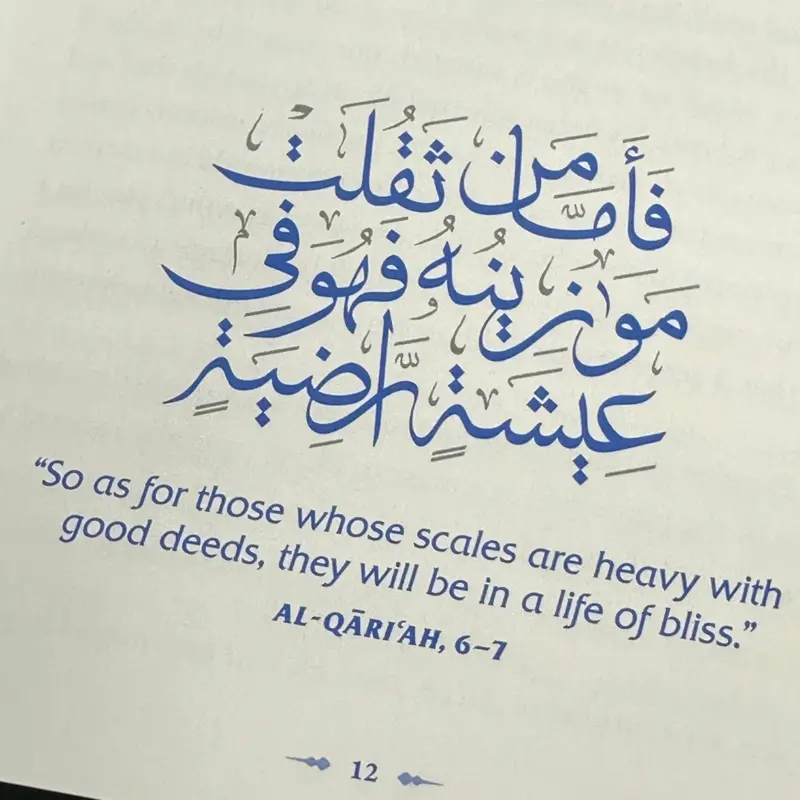 فَأَمَّا مَن ثَقُلَتْ
مَوَٰزِينُهُۥ فَهُوَ فِي
عِيشَةٍ رَّاضِيَةٍ
“So as for those whose scales are heavy with
good deeds, they will be in a life of bliss.”
AL-QĀRIʿAH, 6–7
12